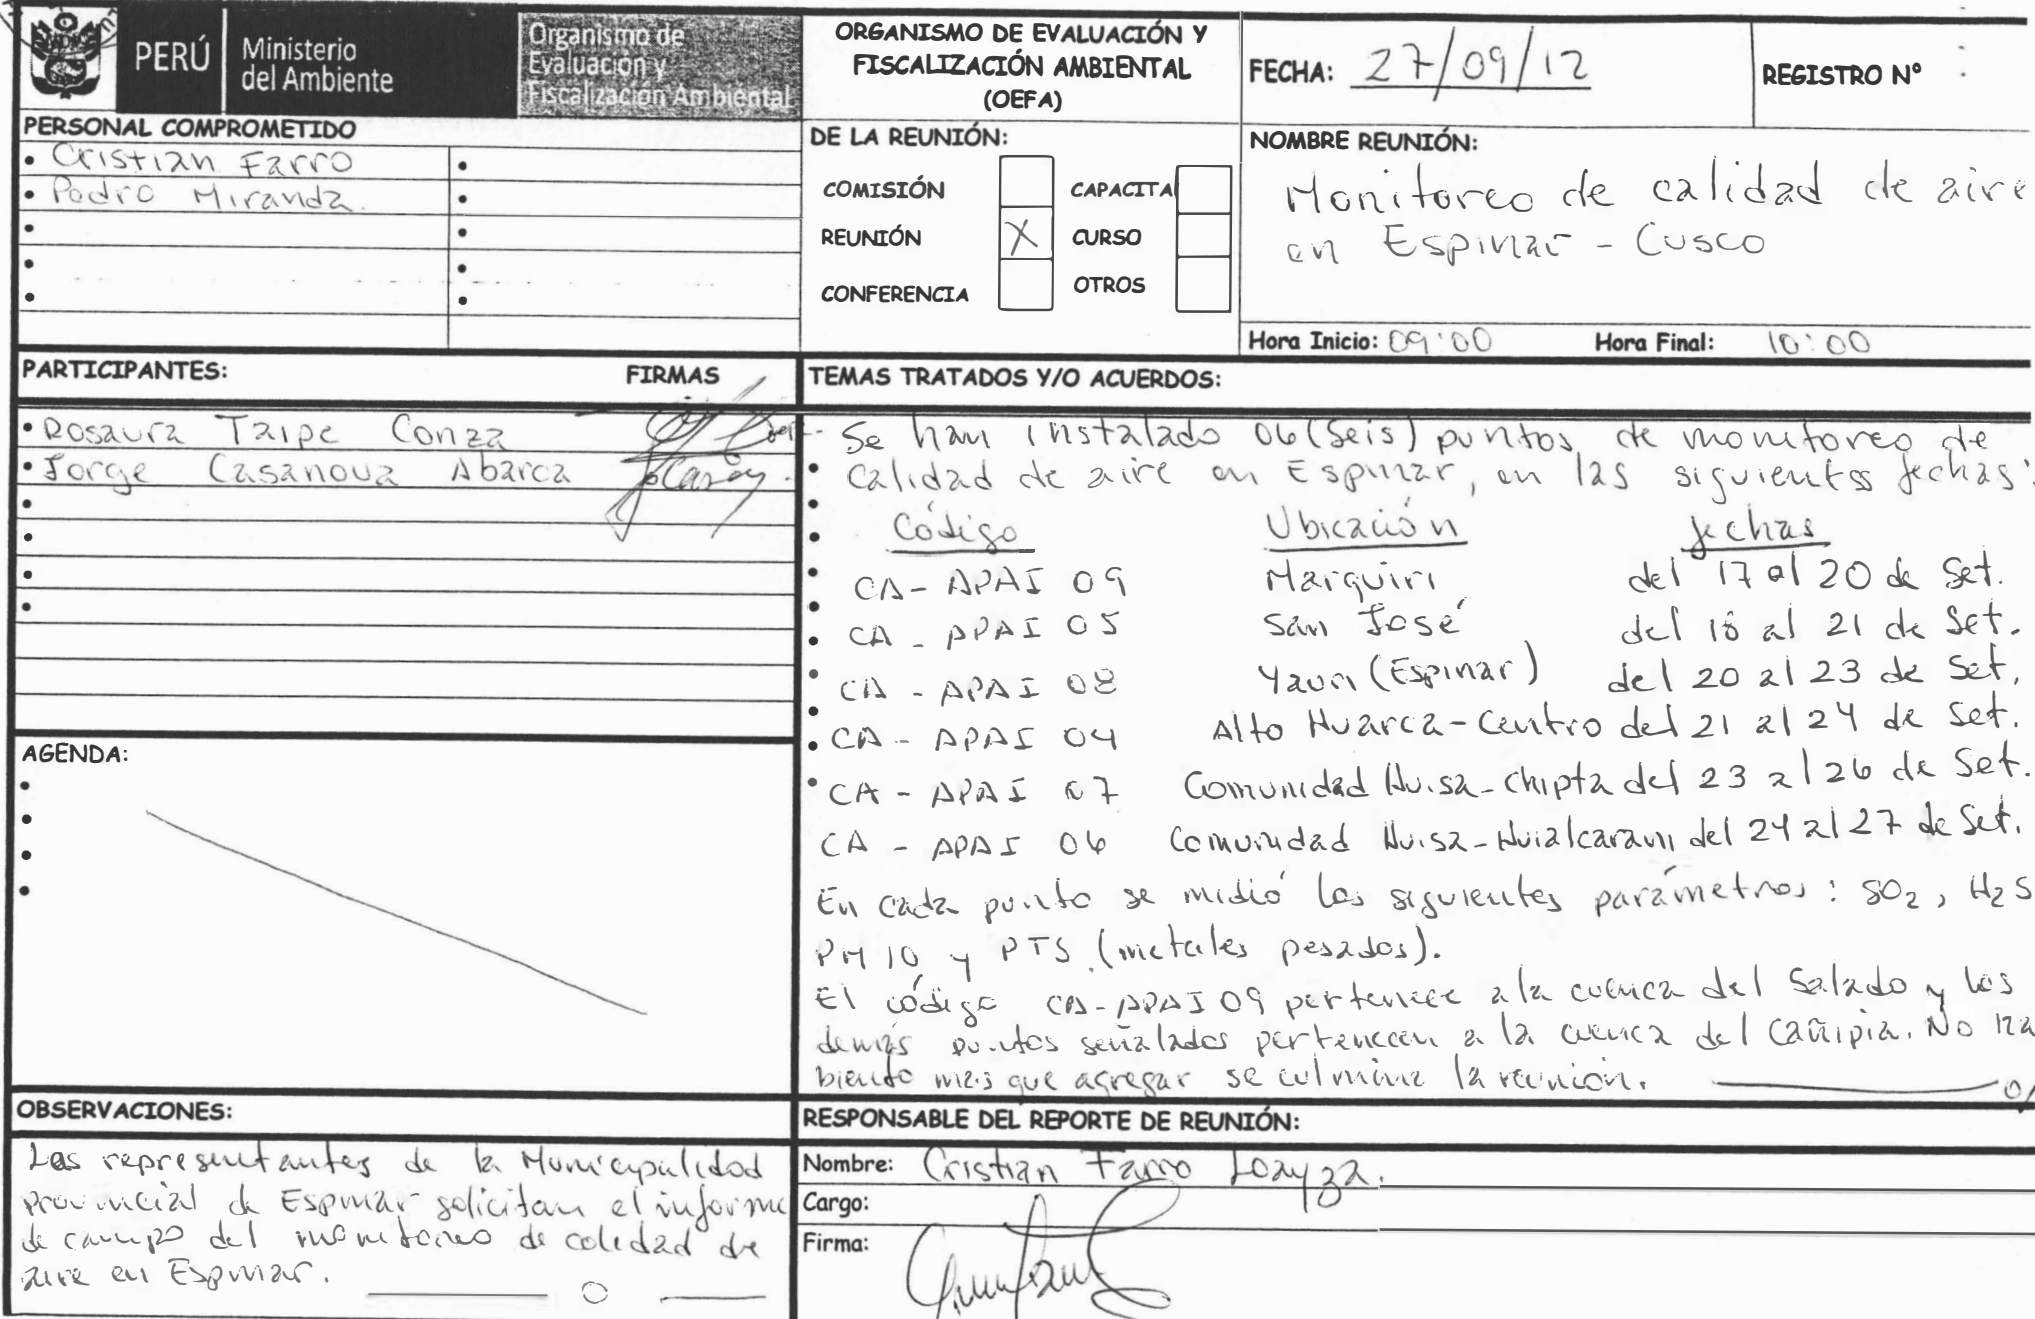 PERÚ
Ministerio
del Ambiente
Organismo de
Evaluación y
Fiscalización Ambiental
ORGANISMO DE EVALUACIÓN Y
FISCALIZACIÓN AMBIENTAL
(OEFA)
FECHA: 27/09/12
REGISTRO Nº
PERSONAL COMPROMETIDO
• Cristian Farro
• Pedro Miranda.
DE LA REUNIÓN:
COMISIÓN
CAPACITA
REUNIÓN X
CURSO
CONFERENCIA
OTROS
NOMBRE REUNIÓN:
Monitoreo de calidad de aire
en Espinar - Cusco
Hora Inicio: 09:00 Hora Final: 10:00
PARTICIPANTES: FIRMAS
• Rosaura Taipe Conza
• Jorge Casanova Abarca
AGENDA:
TEMAS TRATADOS Y/O ACUERDOS:
- Se han instalado 06 (Seis) puntos de monitoreo de
calidad de aire en Espinar, en las siguientes fechas:
Código Ubicación fechas
CA - APAI 09 Marquiri del 17 al 20 de Set.
CA - APAI 05 San José del 18 al 21 de Set.
CA - APAI 08 Yauri (Espinar) del 20 al 23 de Set.
CA - APAI 04 Alto Huarca - Centro del 21 al 24 de Set.
CA - APAI 07 Comunidad Huisa - Chipta del 23 al 26 de Set.
CA - APAI 06 Comunidad Huisa - Huialcarani del 24 al 27 de Set.
En cada punto se midió los siguientes parámetros: SO2, H2S
PM 10 y PTS (metales pesados).
El código CA-APAI 09 pertenece a la cuenca del Salado y los
demás puntos señalados pertenecen a la cuenca del Cañipia. No ha
biendo más que agregar se culmina la reunión.
OBSERVACIONES:
Los representantes de la Municipalidad
provincial de Espinar solicitan el informe
de campo del monitoreo de calidad de
aire en Espinar.
RESPONSABLE DEL REPORTE DE REUNIÓN:
Nombre: Cristian Farro Loayza.
Cargo:
Firma: